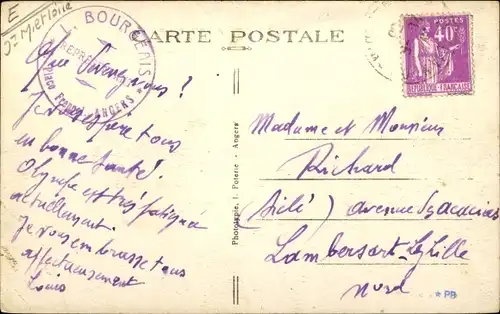 E
BOURGEOIS
ANGERS
CARTE POSTALE
POSTES
40c
REPUBLIQUE FRANÇAISE
Que devenez vous ?
Je vous espère tous
en bonne santé.
Olympe est très fatiguée
actuellement.
Je vous embrasse tous
affectueusement
Louis
Phototypie J. Poterie - Angers
Madame et Monsieur
Richard
avenue des acacias
Lambersart-lez-Lille
Nord
* PB